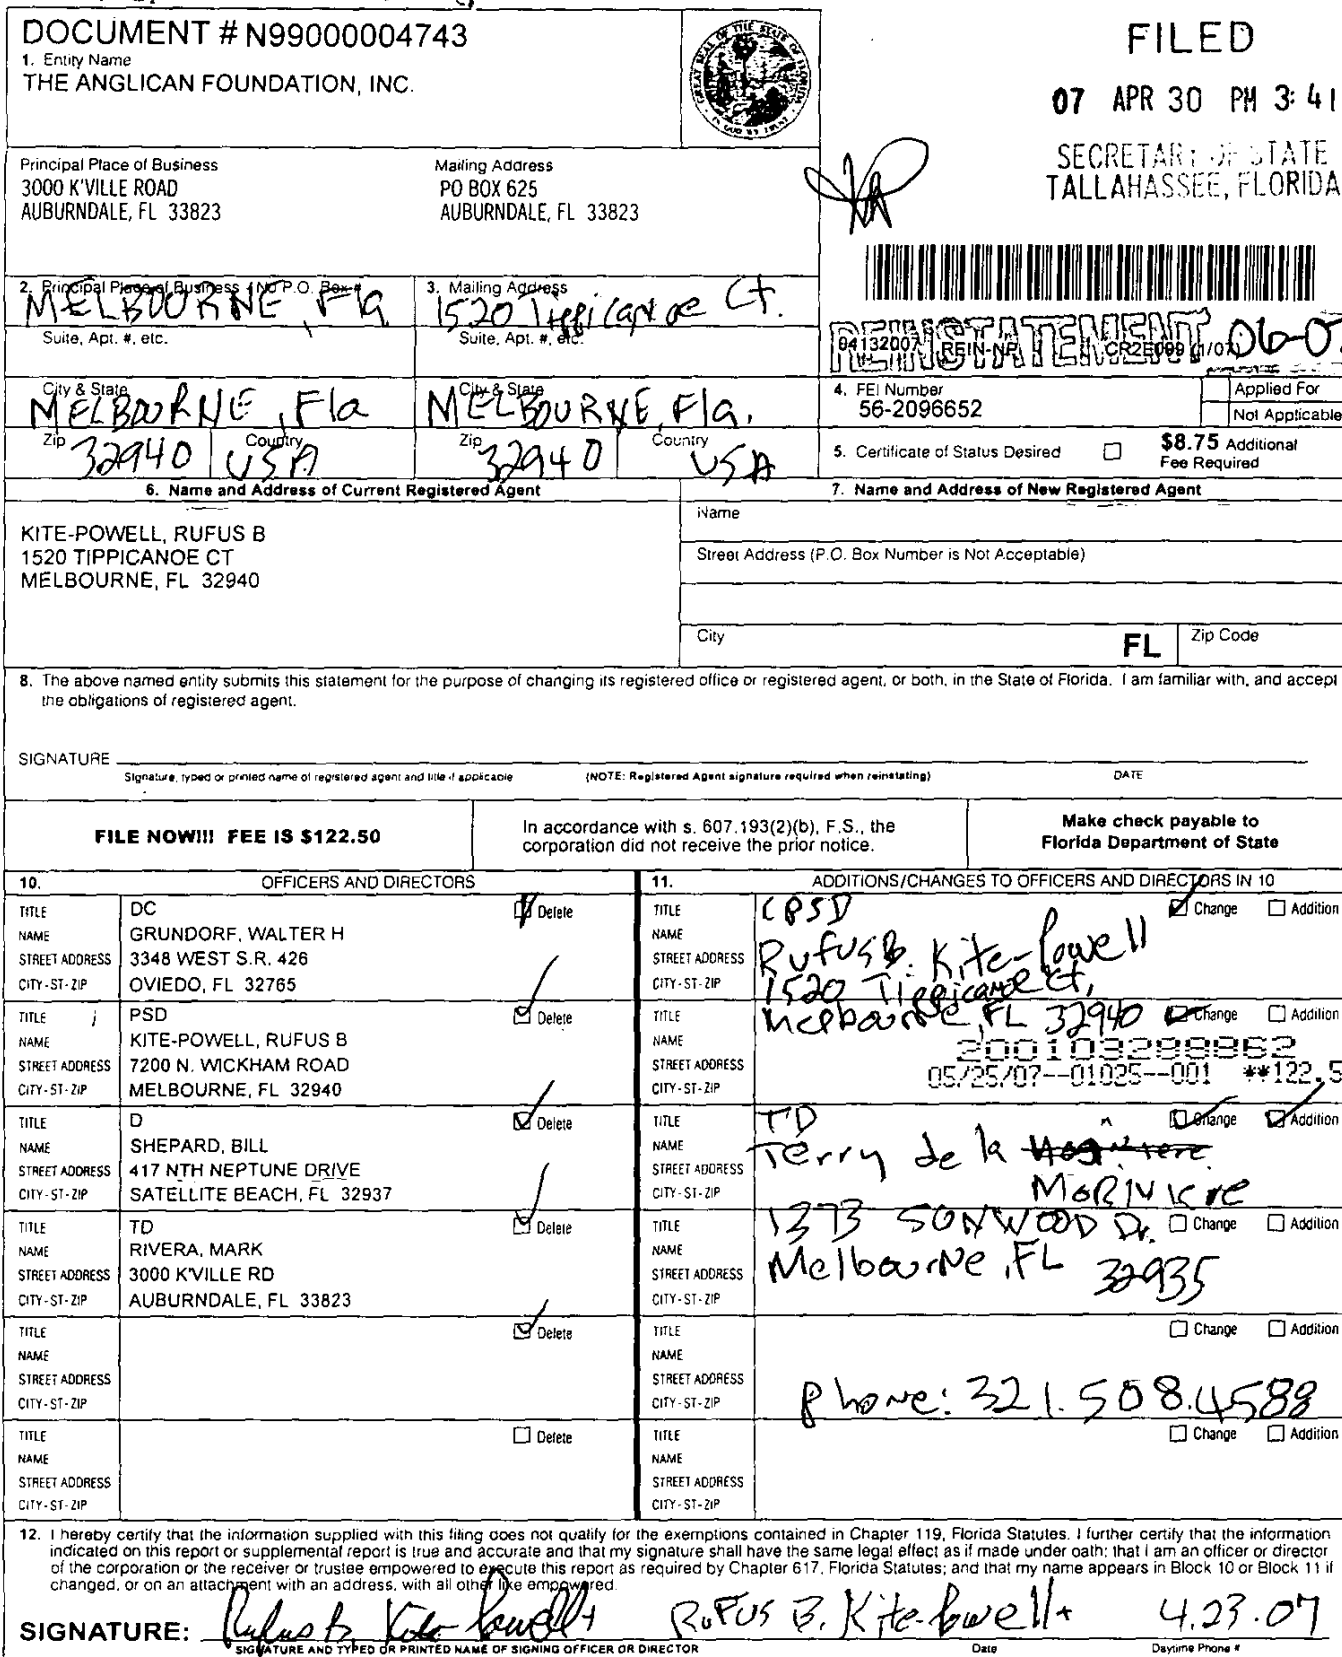 DOCUMENT # N99000004743
1. Entity Name
THE ANGLICAN FOUNDATION, INC.
FILED
07 APR 30 PM 3:41
SECRETARY OF STATE
TALLAHASSEE, FLORIDA
Principal Place of Business
3000 K'VILLE ROAD
AUBURNDALE, FL 33823
Mailing Address
PO BOX 625
AUBURNDALE, FL 33823
2. Principal Place of Business (No P.O. Box #
MELBOURNE, Fla
Suite, Apt. #, etc.
3. Mailing Address
1520 Tippicanoe Ct.
Suite, Apt. #, etc.
REINSTATEMENT 06-07
04132007 REIN-NP CR2E099 (1/07)
City & State
MELBOURNE, Fla
City & State
MELBOURNE, Fla.
Zip 32940 Country USA
Zip 32940 Country USA
4. FEI Number
56-2096652
Applied For
Not Applicable
5. Certificate of Status Desired
$8.75 Additional
Fee Required
6. Name and Address of Current Registered Agent
KITE-POWELL, RUFUS B
1520 TIPPICANOE CT
MELBOURNE, FL 32940
7. Name and Address of New Registered Agent
Name
Street Address (P.O. Box Number is Not Acceptable)
City
FL
Zip Code
8. The above named entity submits this statement for the purpose of changing its registered office or registered agent, or both, in the State of Florida. I am familiar with, and accept
the obligations of registered agent.
SIGNATURE
Signature, typed or printed name of registered agent and title if applicable
(NOTE: Registered Agent signature required when reinstating)
DATE
FILE NOW!!! FEE IS $122.50
In accordance with s. 607.193(2)(b), F.S., the
corporation did not receive the prior notice.
Make check payable to
Florida Department of State
10. OFFICERS AND DIRECTORS
TITLE DC Delete
NAME GRUNDORF, WALTER H
STREET ADDRESS 3348 WEST S.R. 426
CITY-ST-ZIP OVIEDO, FL 32765
TITLE PSD Delete
NAME KITE-POWELL, RUFUS B
STREET ADDRESS 7200 N. WICKHAM ROAD
CITY-ST-ZIP MELBOURNE, FL 32940
TITLE D Delete
NAME SHEPARD, BILL
STREET ADDRESS 417 NTH NEPTUNE DRIVE
CITY-ST-ZIP SATELLITE BEACH, FL 32937
TITLE TD Delete
NAME RIVERA, MARK
STREET ADDRESS 3000 K'VILLE RD
CITY-ST-ZIP AUBURNDALE, FL 33823
TITLE Delete
NAME
STREET ADDRESS
CITY-ST-ZIP
TITLE Delete
NAME
STREET ADDRESS
CITY-ST-ZIP
11. ADDITIONS/CHANGES TO OFFICERS AND DIRECTORS IN 10
TITLE CPSD Change Addition
NAME Rufus B. Kite-Powell
STREET ADDRESS 1520 Tippicanoe Ct,
CITY-ST-ZIP
TITLE Melbourne, FL 32940 Change Addition
NAME 200103298862
STREET ADDRESS 05/25/07--01025--001 **122.5
CITY-ST-ZIP
TITLE TD Change Addition
NAME Terry de la
STREET ADDRESS
CITY-ST-ZIP MORIVIERE
TITLE 1373 SONWOOD Dr. Change Addition
NAME Melbourne, FL
STREET ADDRESS 32935
CITY-ST-ZIP
TITLE Change Addition
NAME
STREET ADDRESS
CITY-ST-ZIP Phone: 321.508.4588
TITLE Change Addition
NAME
STREET ADDRESS
CITY-ST-ZIP
12. I hereby certify that the information supplied with this filing does not qualify for the exemptions contained in Chapter 119, Florida Statutes. I further certify that the information
indicated on this report or supplemental report is true and accurate and that my signature shall have the same legal effect as if made under oath; that I am an officer or director
of the corporation or the receiver or trustee empowered to execute this report as required by Chapter 617, Florida Statutes; and that my name appears in Block 10 or Block 11 if
changed, or on an attachment with an address, with all other like empowered.
SIGNATURE: Rufus B. Kite-Powell+ RUFUS B. Kite-Powell+ 4.23.07
SIGNATURE AND TYPED OR PRINTED NAME OF SIGNING OFFICER OR DIRECTOR Date Daytime Phone #